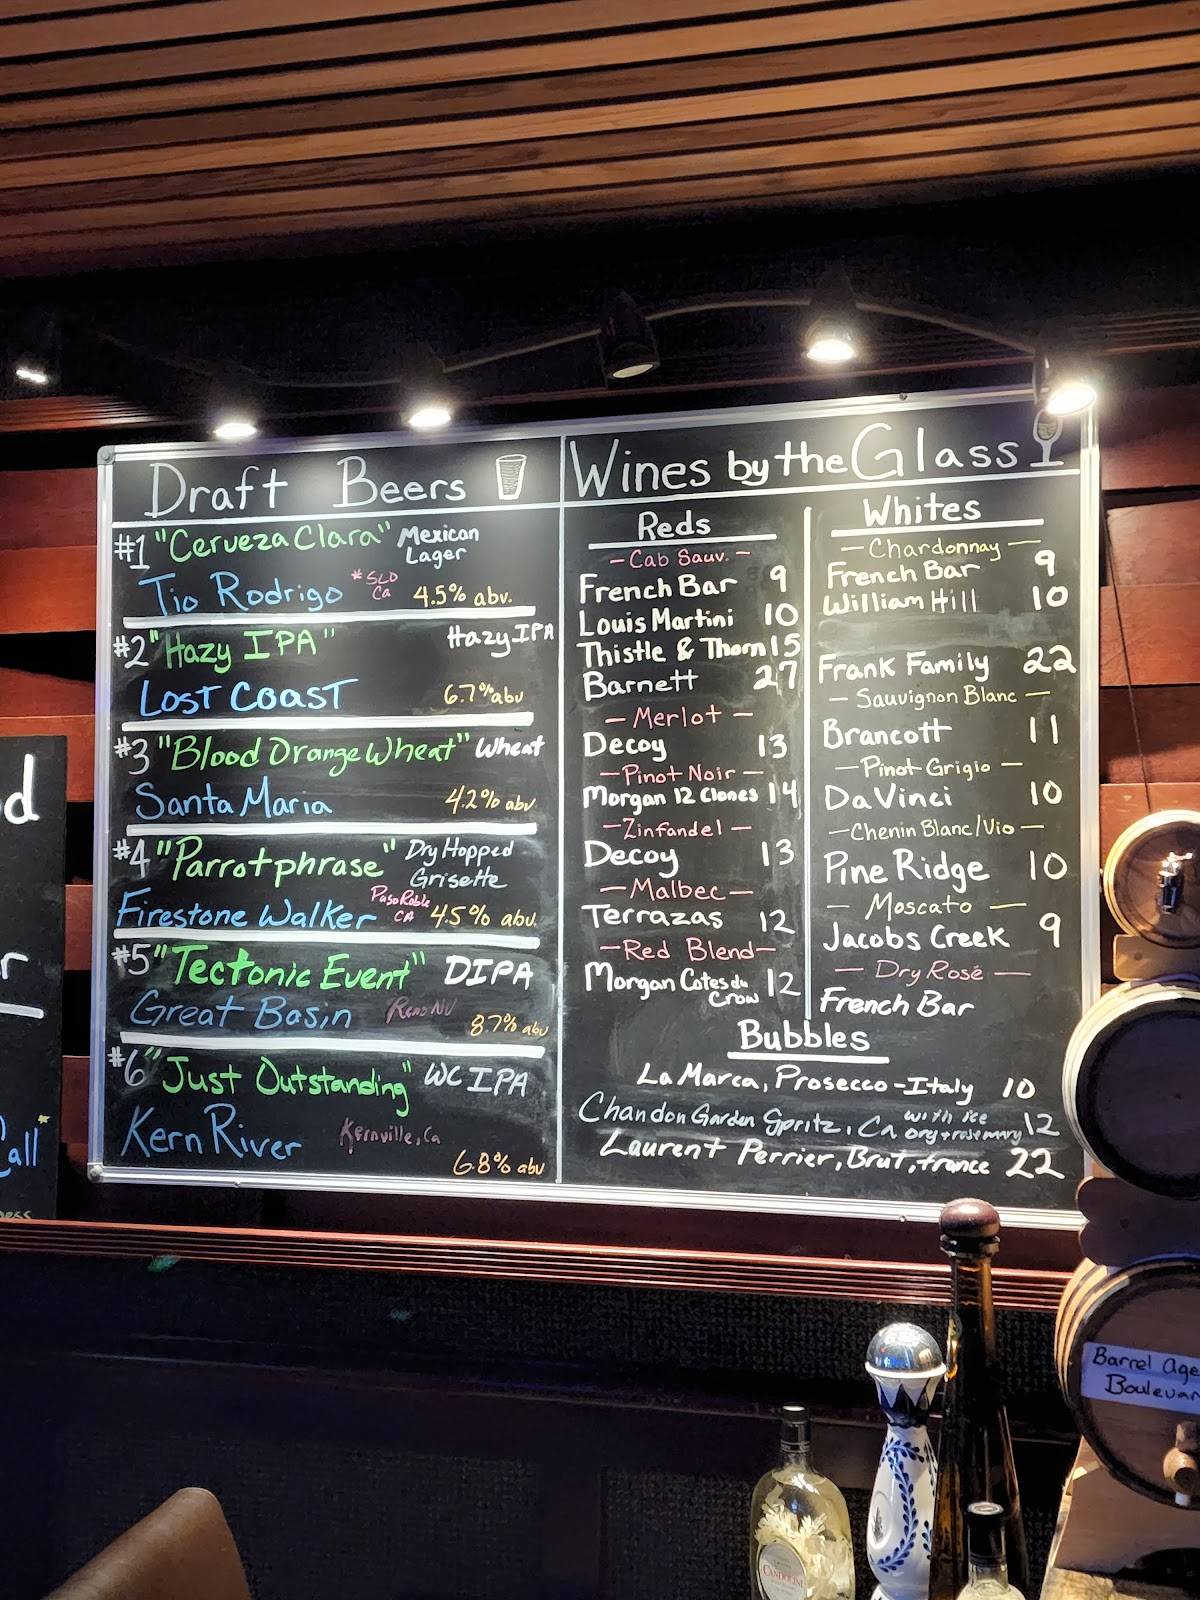 Draft Beers
#1 "Cerveza Clara" Mexican Lager
Tio Rodrigo *SLO Ca 4.5% abv.
#2 "Hazy IPA" Hazy IPA
Lost Coast 6.7% abv
#3 "Blood Orange Wheat" Wheat
Santa Maria 4.2% abv
#4 "Parrotphrase" Dry Hopped Grisette
Firestone Walker Paso Roble CA 4.5% abv.
#5 "Tectonic Event" DIPA
Great Basin Reno NV 8.7% abv
#6 "Just Outstanding" WC IPA
Kern River Kernville, Ca
6.8% abv
Wines by the Glass
Reds
- Cab Sauv. -
French Bar 9
Louis Martini 10
Thistle & Thorn 15
Barnett 27
- Merlot -
Decoy 13
- Pinot Noir -
Morgan 12 Clones 14
- Zinfandel -
Decoy 13
- Malbec -
Terrazas 12
- Red Blend -
Morgan Cotes du Crow 12
Whites
- Chardonnay -
French Bar 9
William Hill 10
Frank Family 22
- Sauvignon Blanc -
Brancott 11
- Pinot Grigio -
DaVinci 10
- Chenin Blanc/Vio -
Pine Ridge 10
- Moscato -
Jacobs Creek 9
- Dry Rosé -
French Bar
Bubbles
La Marca, Prosecco - Italy 10
Chandon Garden Spritz, Ca with ice org + rosemary 12
Laurent Perrier, Brut, france 22
d
r
Call
ess
Barrel Age
Boulevar